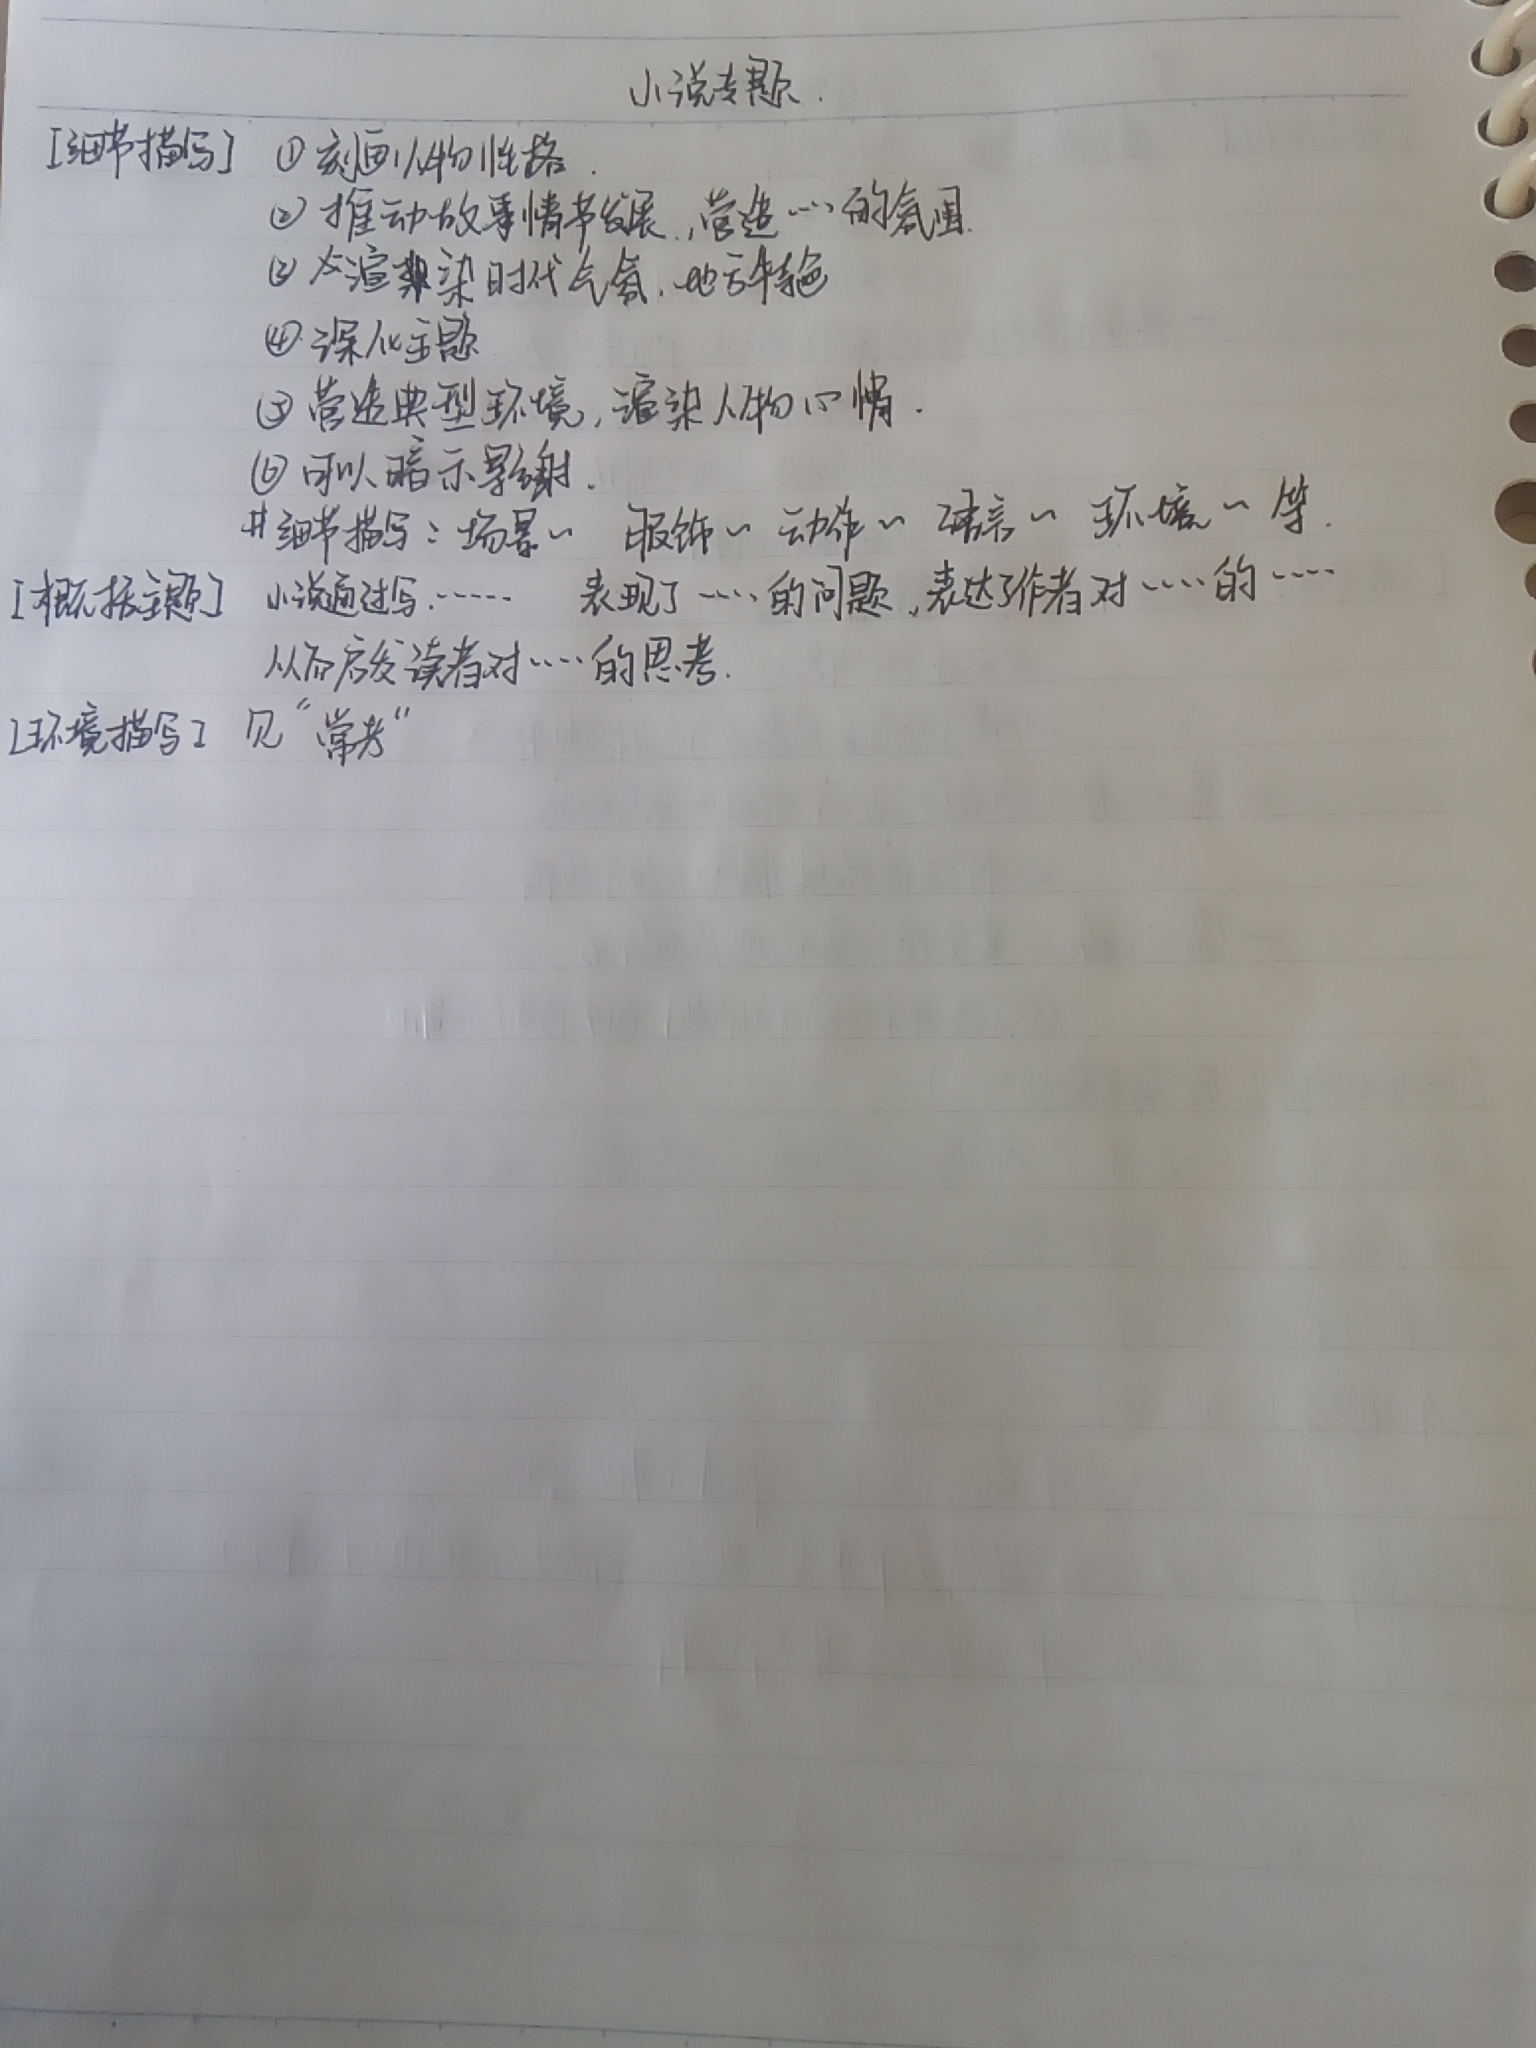 小说专题.
[细节描写] ①刻画人物性格.
②推动故事情节发展,营造……的氛围.
③渲染时代气氛.地方特色
④深化主题
⑤营造典型环境,渲染人物心情.
⑥可以暗示影射.
#细节描写:场景~ 服饰~ 动作~ 语言~ 环境~等.
[概括主题] 小说通过写…… 表现了……的问题,表达了作者对……的……
从而启发读者对……的思考.
[环境描写] 见“常考”